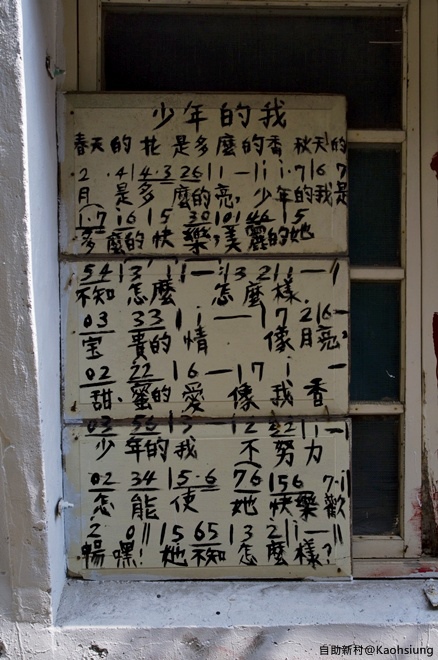 少年的我
春天的花 是多麼的香 秋天的
2 . 4 | 4·3 26 | 1 — | i i·7 | 6 7
月 是多 麼的亮, 少年的我是
i·7 i6 | 5 30 | 101 46 | 5
多麼的快樂,美麗的她
54 | 3 1 | — | 3 2 | i — |
不知 怎麼 怎麼樣.
03 33 | i — | 7 2 | 6 —
宝 貴的 情 像月亮,
02 22 | 6 — | 7 i —
甜.蜜的愛 像我香
03 56 | 3 — | 2 22 | i — |
少年的我 不努力
02 34 | 5·6 76 | 56 7·i |
怎 能 使 她 快樂歡
2 0 || 5 65 | 3 2 | i — ||
暢嘿! 她不知怎麼樣?
自助新村@Kaohsiung